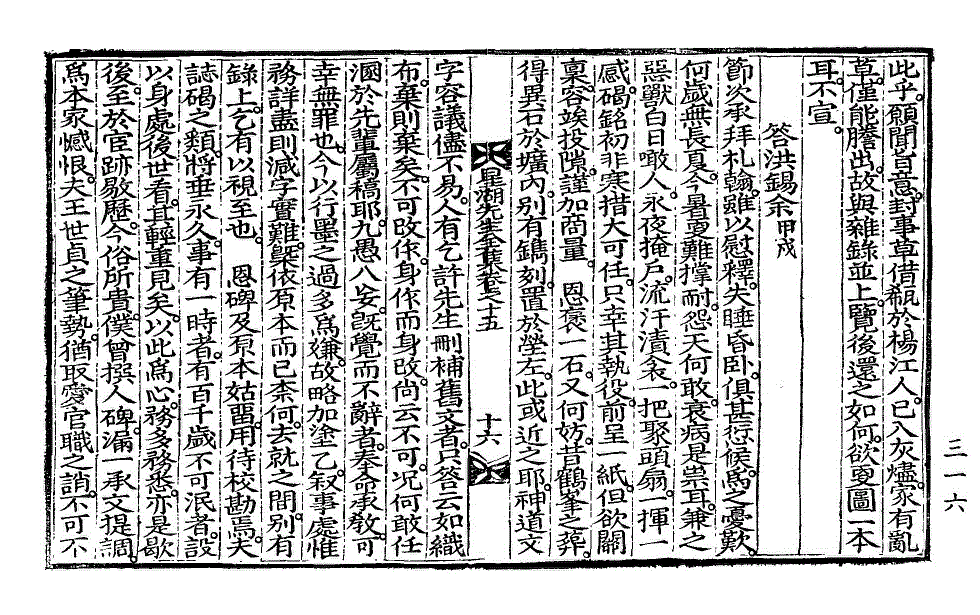 此乎願聞首意封事草借瓻於楊江人已入灰燼家有亂
草僅能謄出故與雜錄並上覽後還之如何欲更圖一本
耳不宣
答洪錫余甲戌
節次承拜札翰雖以慰釋失睡昏卧俱甚愆候爲之憂歎
何歲無長夏今暑憂難撑耐怨天何敢衰病是祟耳兼之
惡獸白日噉人永夜掩戶流汗漬衾一把聚頭扇一揮一
感碣銘初非寒措大可任只幸其執役前呈一紙但欲關
稟容竢投隙謹加商量 恩褒一石又何妨昔鶴峯之葬
得異石於壙內別有鐫刻置於塋左此或近之耶神道文
星湖先生全集卷之十五 十六
字容議儘不易人有乞許先生刪補舊文者只答云如織
布棄則棄矣不可改作身作而身改尙云不可况何敢任
溷於先輩屬稿耶九愚八妄旣覺而不辭者奉命承敎可
幸無罪也今以行墨之過多爲嫌故略加塗乙叙事處惟
務詳盡則减字實難槩依原本而已柰何去就之間別有
錄上乞有以視至也 恩碑及原本姑留用待校勘焉夫
誌碣之類將垂永久事有一時者有百千歲不可泯者設
以身處後世看其輕重見矣以此爲心務多務悉亦是歇
後至於宦跡敭歷今俗所貴僕曾撰人碑漏一承文提調
爲本家憾恨夫王世貞之筆勢猶取蠻官職之誚不可不
三一六